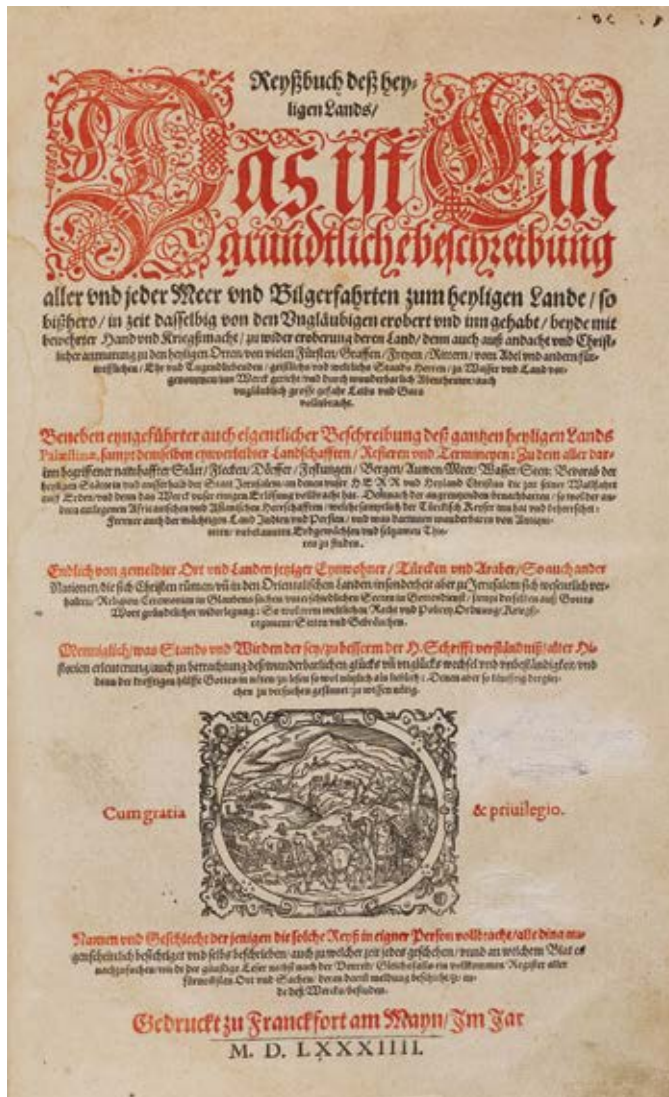 Reyßbuch deß hey-
ligen Lands/
Das ist Ein
grundtliche beschreibung
aller vnd jeder Meer vnd Bilgerfahrten zum heyligen Lande / so
bißhero / in zeit dasselbig von den Vngläubigen erobert vnd inn gehabt / beyde mit
bewehrter Hand vnd Kriegßmacht / zu wider eroberung deren Land / denn auch auß andacht vnd Christ-
licher anmutung zu den heyligen Orten / von vielen Fürsten / Graffen / Freyen / Rittern / vom Adel vnd andern für-
trefflichen / Ehr vnd Tugendliebenden / geistlichs vnd weltlichs Stands Herren / zu Wasser vnd Land vor-
genommen / ins Werck gericht / vnd durch wunderbarlich Abentheuwr / auch
vnglaublich grosse gefahr Leibs vnd Guts
vollnbracht.
Beneben eyngeführter auch eigentlicher Beschreibung deß gantzen heyligen Lands
Palæstinæ, sampt demselben eynverleibter Landschafften / Refieren vnd Termineyen : Zu dem aller dar-
inn begriffener namhaffter Stätt / Flecken / Dörffer / Festungen / Bergen / Auwen / Meer / Wasser / Seen : Bevorab der
heyligen Stätten in vnd ausserhalb der Statt Jerusalem / an denen vnser HERR vnd Heyland Christus die zeit seiner Wallfahrt
auff Erden / vnd denn das Werck vnser einigen Erlösung vollbracht hat.
Ferrner auch der mächtigen Land Indien vnd Persien / vnd was darinnen wunderbares von
zu finden.
Endlich von gemeldter Ort vnd Landen jetziger Eynwohner / Türcken vnd Araber / So auch ander
Nationen / die sich Christen rümen / vñ in den Orientalischen Landen / insonderheit aber zu Jerusalem sich wesentlich ver-
halten / Religion Ceremonien in Glaubens sachen
Wort gründtlicher widerlegung : So wol jrem weltlichen Recht vnd Policey Ordnung / Kriegß-
regiment / Sitten vnd Gebräuchen.
Menniglich / was Stands vnd Wirden der sey / zu besserm der H. Schrifft verständniß / alter Hi-
storien erleuterung / auch zu betrachtung deß wunderbarlichen glücks vñ vnglücks wechsel vnd vnbeständigkeit / vnd
denn der krefftigen hülffe Gottes in nöten / zu lesen so wol nützlich als lieblich : Denen aber so künfftig derglei-
chen zu versuchen gesinnet / zu wissen nötig.
Cum gratia & priuilegio.
Namen vnd Geschlecht der jenigen die solche Reyß in eigner Person vollbracht / alle ding au-
genscheinlich besichtiget vnd selbs beschrieben / auch zu welcher zeit jedes geschehen / vnnd an welchem Blat es
nachzusuchen / wirdt der günstige Leser nechst nach der Vorred / Gleichsfalls ein vollkommen Register aller
fürnembsten Ort vnd Sachen / deren
deß Wercks / befinden.
Gedruckt zu Franckfort am Mayn / Im Jar
M. D. LXXXIIII.